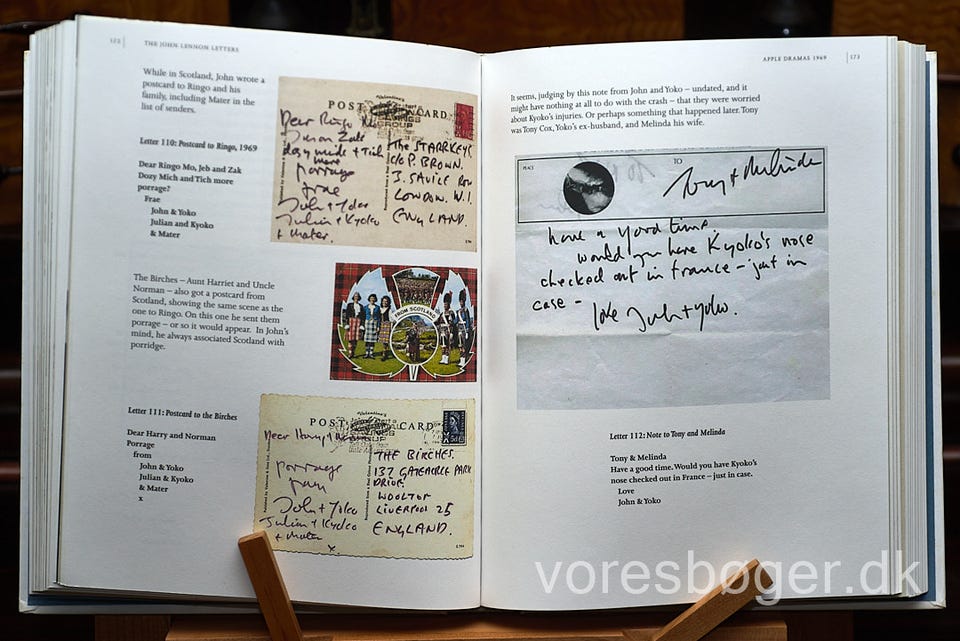 122 THE JOHN LENNON LETTERS
While in Scotland, John wrote a
postcard to Ringo and his
family, including Mater in the
list of senders.
Letter 110: Postcard to Ringo, 1969
Dear Ringo Mo, Jeb and Zak
Dozy Mich and Tich more
porrage?
Frae
John & Yoko
Julian and Kyoko
& Mater
POST CARD
Dear Ringo Mo
Zak
dozy mich + Tich
more
porrage
frae
John + Yoko
Julian + Kyoko
+ mater.
The STARKEYS
C/O P. BROWN.
3. SAVILE ROW
LONDON. W.1.
ENGLAND.
The Birches – Aunt Harriet and Uncle
Norman – also got a postcard from
Scotland, showing the same scene as the
one to Ringo. On this one he sent them
porrage – or so it would appear. In John's
mind, he always associated Scotland with
porridge.
FROM SCOTLAND
Letter 111: Postcard to the Birches
Dear Harry and Norman
Porrage
from
John & Yoko
Julian & Kyoko
& Mater
x
POST CARD
Dear Harry + Norman
porrage
from
John + Yoko
Julian + Kyoko
+ mater
x.
THE BIRCHES.
137 GATEACRE PARK
DRIVE.
WOOLTON
LIVERPOOL 25
ENGLAND.
APPLE DRAMAS 1969 173
It seems, judging by this note from John and Yoko – undated, and it
might have nothing at all to do with the crash – that they were worried
about Kyoko's injuries. Or perhaps something that happened later. Tony
was Tony Cox, Yoko's ex-husband, and Melinda his wife.
PEACE
TO
Tony + Melinda
have a good time.
would you have Kyoko's nose
checked out in france – just in
case –
love John + Yoko.
Letter 112: Note to Tony and Melinda
Tony & Melinda
Have a good time. Would you have Kyoko's
nose checked out in France – just in case.
Love
John & Yoko
voresbøger.dk